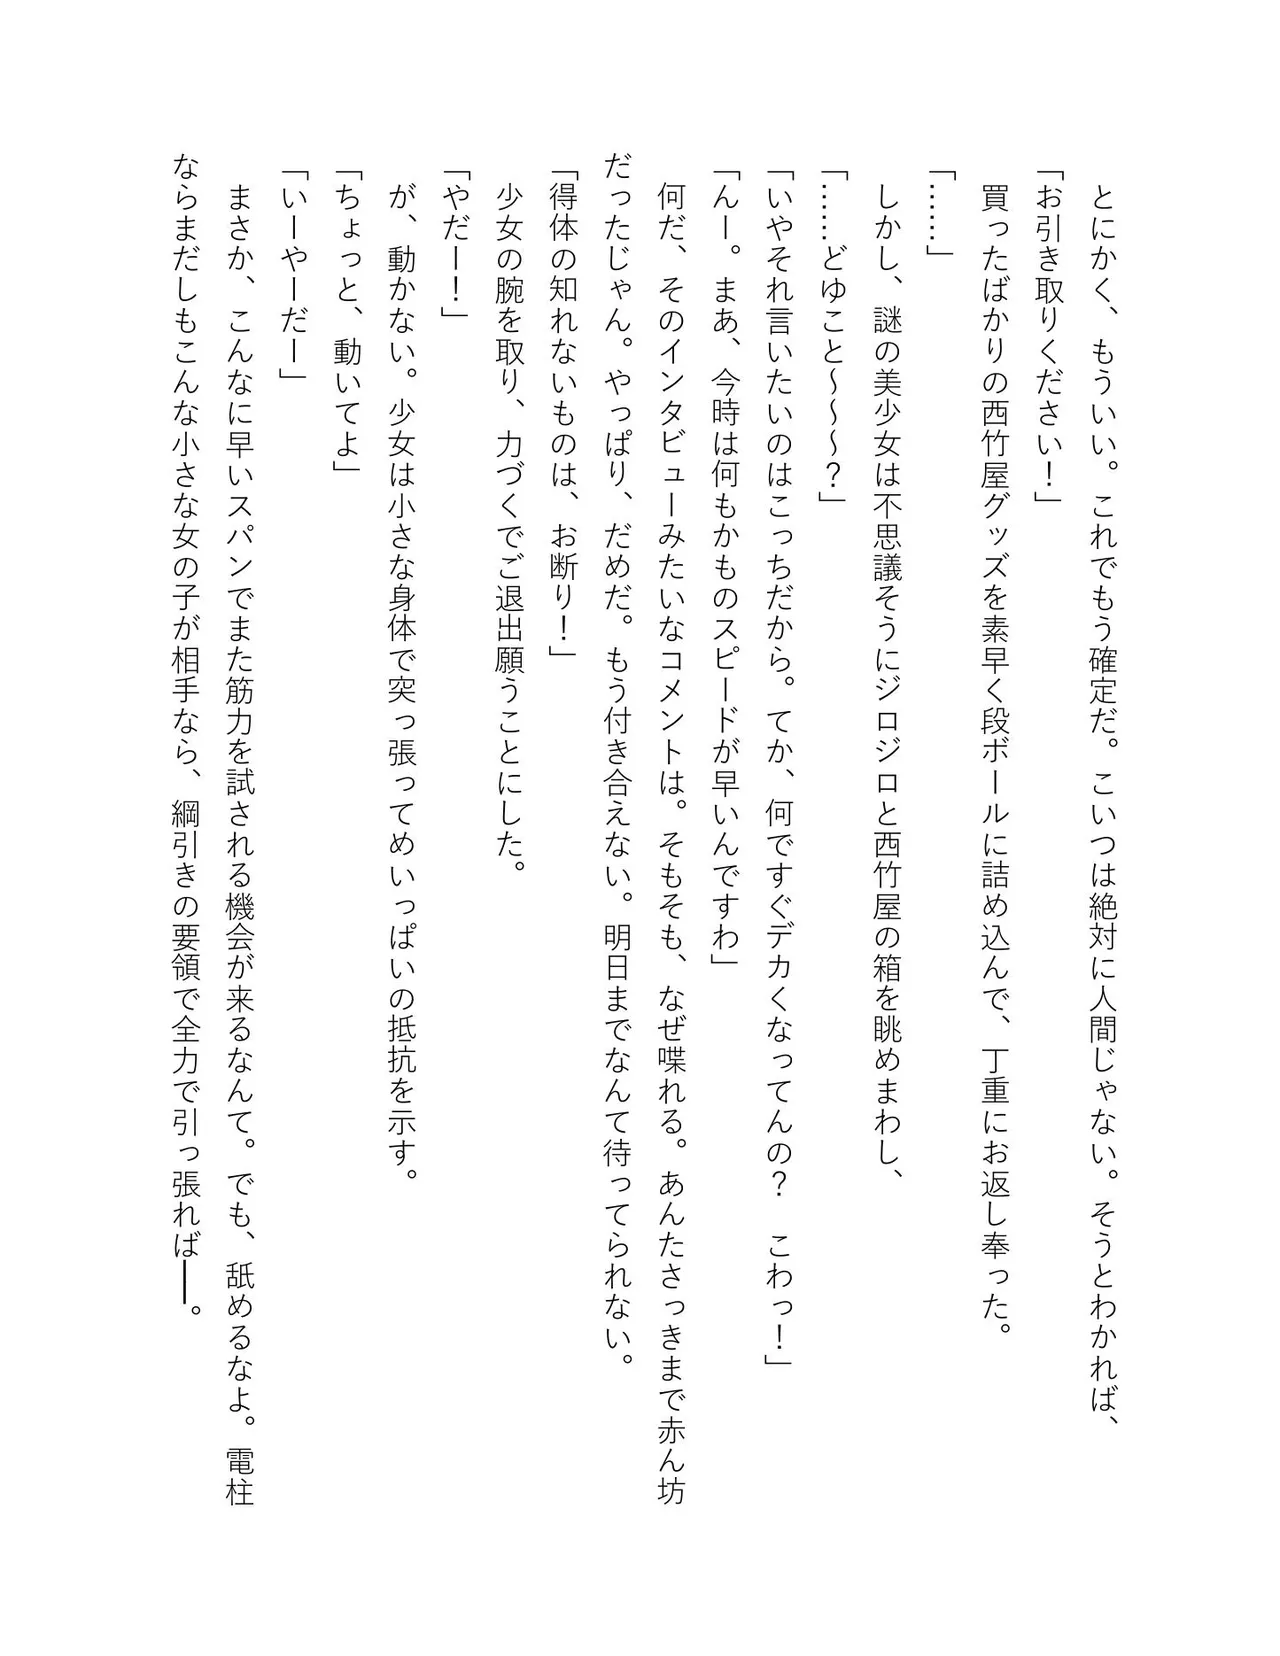 とにかく、もういい。これでもう確定だ。こいつは絶対に人間じゃない。そうとわかれば、
「お引き取りください！」
買ったばかりの西竹屋グッズを素早く段ボールに詰め込んで、丁重にお返し奉った。
「……」
しかし、謎の美少女は不思議そうにジロジロと西竹屋の箱を眺めまわし、
「……どゆこと～～～？」
「いやそれ言いたいのはこっちだから。てか、何ですぐデカくなってんの？　こわっ！」
「んー。まあ、今時は何もかものスピードが早いんですわ」
何だ、そのインタビューみたいなコメントは。そもそも、なぜ喋れる。あんたさっきまで赤ん坊
だったじゃん。やっぱり、だめだ。もう付き合えない。明日までなんて待ってられない。
「得体の知れないものは、お断り！」
少女の腕を取り、力づくでご退出願うことにした。
「やだー！」
が、動かない。少女は小さな身体で突っ張ってめいっぱいの抵抗を示す。
「ちょっと、動いてよ」
「いーやーだー」
まさか、こんなに早いスパンでまた筋力を試される機会が来るなんて。でも、舐めるなよ。電柱
ならまだしもこんな小さな女の子が相手なら、綱引きの要領で全力で引っ張れば――。